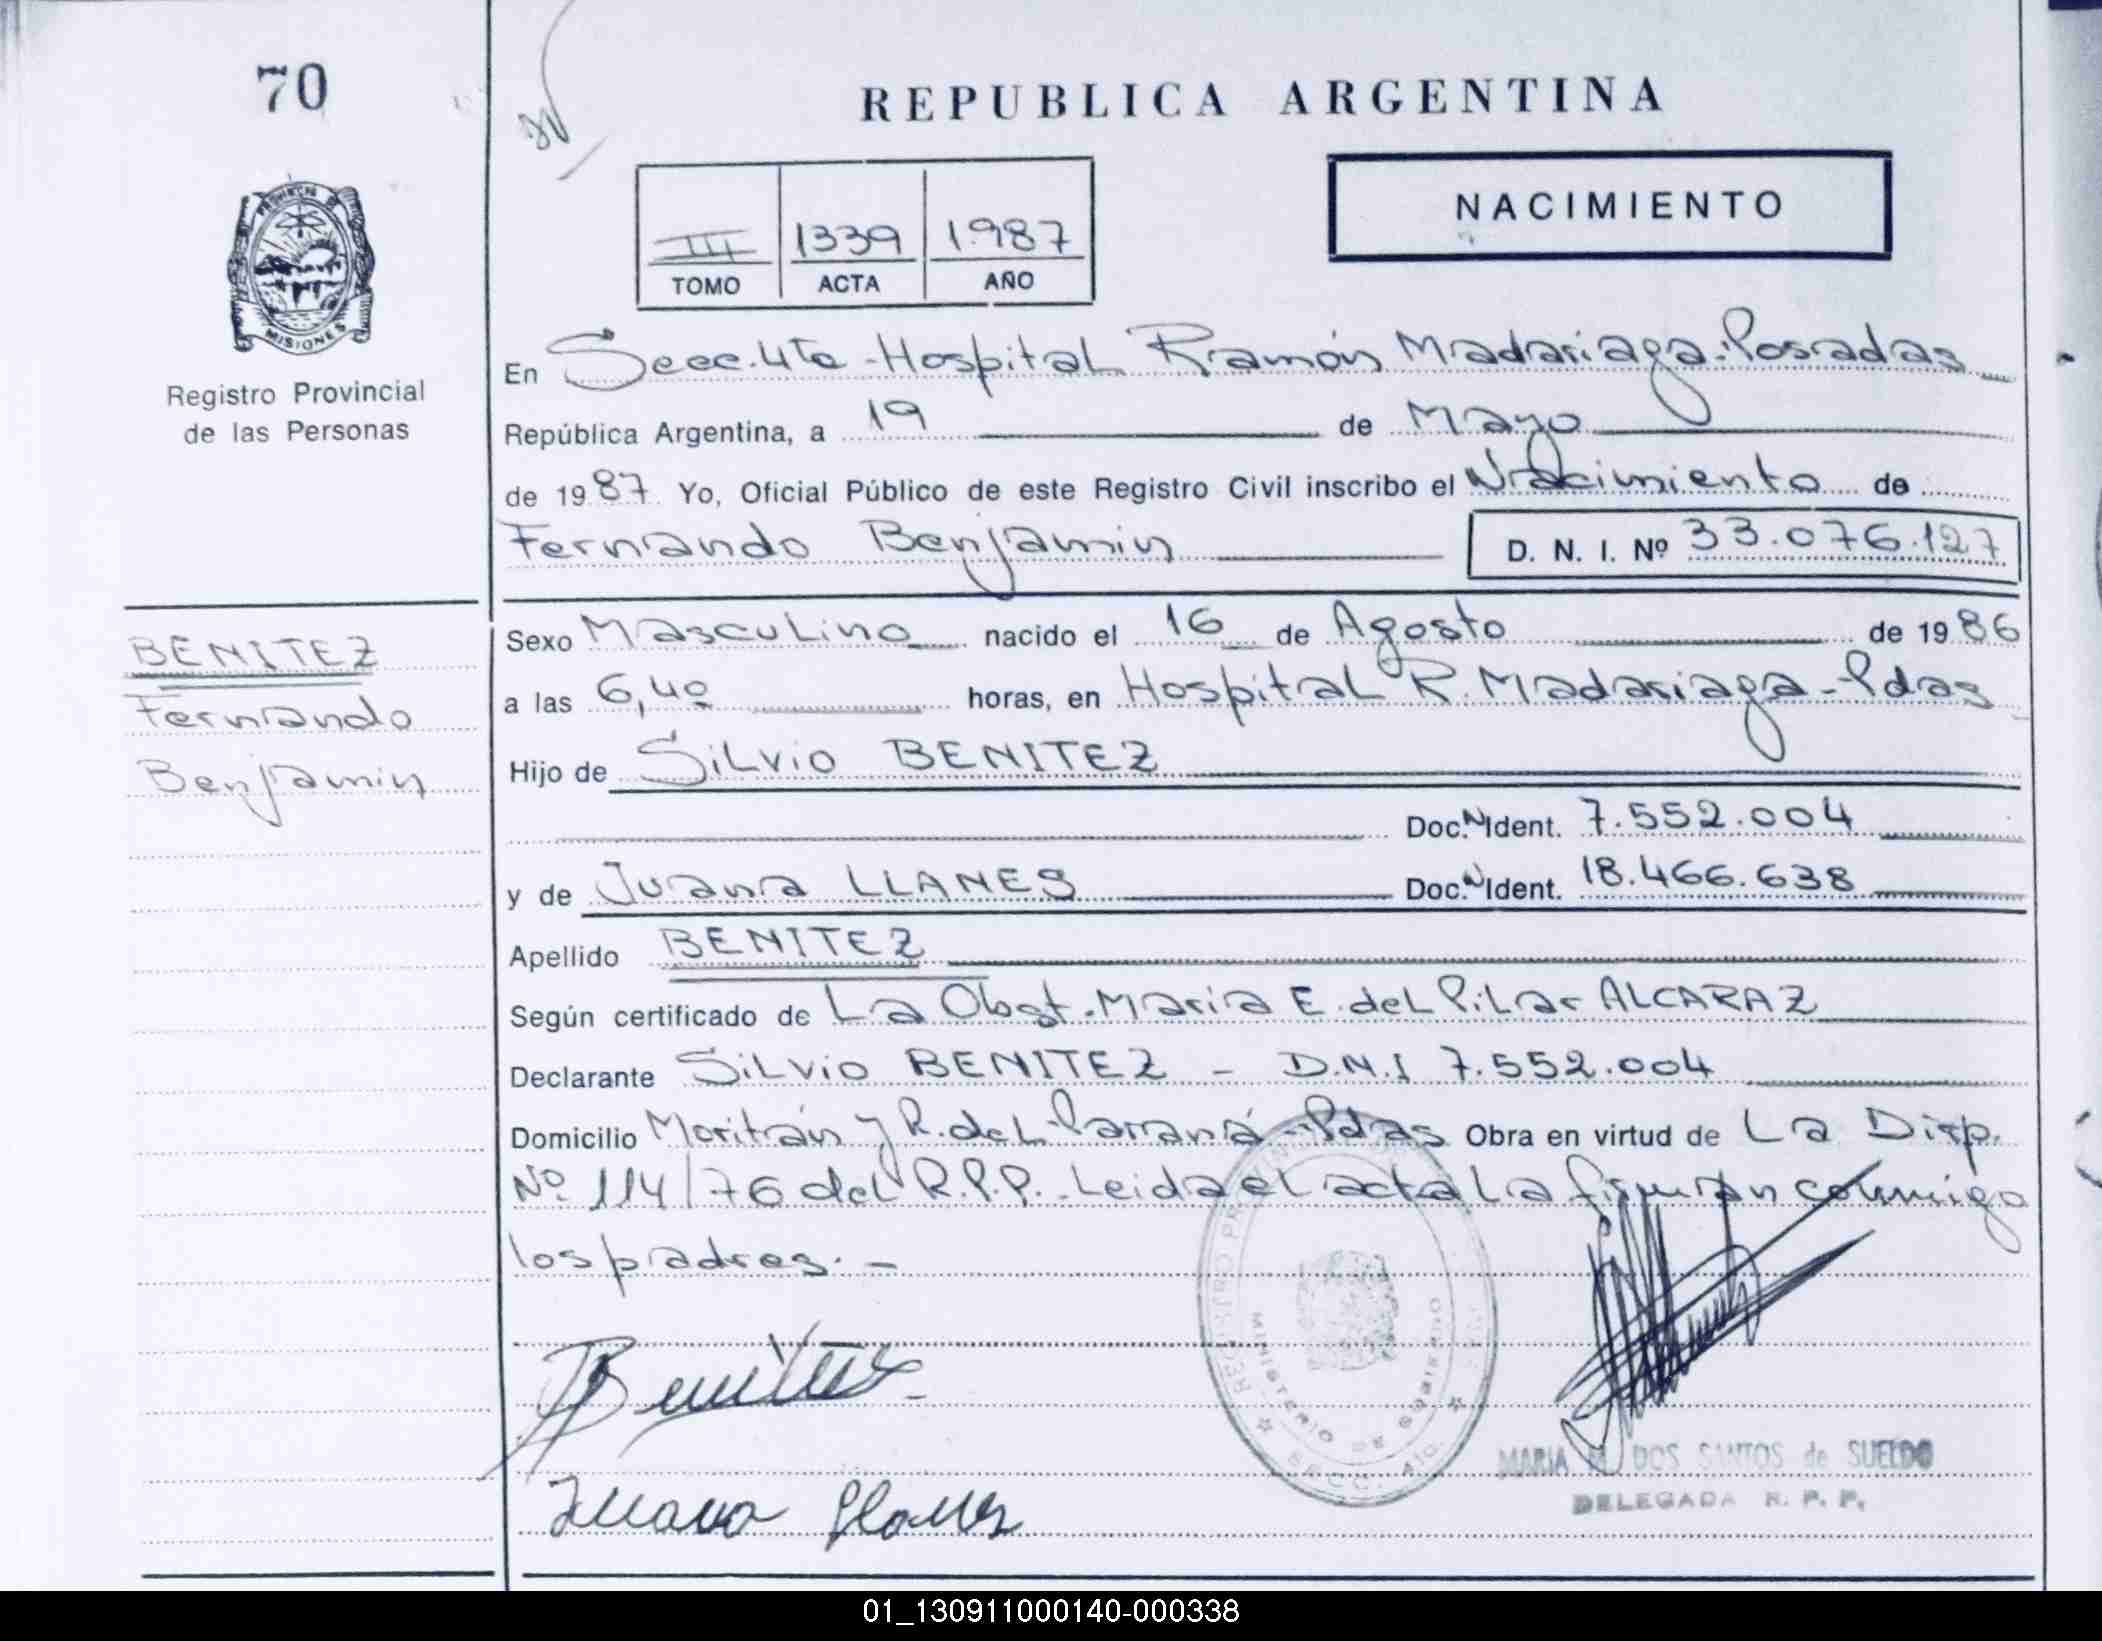 70
REPUBLICA ARGENTINA
PROVINCIA DE
MISIONES
Registro Provincial
de las Personas
III 1339 1987
TOMO ACTA AÑO
NACIMIENTO
En Secc. 4ta - Hospital Ramón Madariaga - Posadas
República Argentina, a 19 de Mayo
de 1987 Yo, Oficial Público de este Registro Civil inscribo el Nacimiento de
Fernando Benjamin D. N. I. Nº 33.076.127
BENITEZ
Fernando
Benjamin
Sexo Masculino nacido el 16 de Agosto de 1986
a las 6,40 horas, en Hospital R. Madariaga - Pdas
Hijo de Silvio BENITEZ
Doc. N Ident. 7.552.004
y de Juana LLANES Doc. N Ident. 18.466.638
Apellido BENITEZ
Según certificado de La Obst. Maria E. del Pilar ALCARAZ
Declarante Silvio BENITEZ - D.N.I 7.552.004
Domicilio Moritán y R. del Paraná - Pdas Obra en virtud de La Disp.
Nº 114/76 del R.P.P. Leida el acta La firman conmigo
los padres. -
REGISTRO PROVINCIAL
MINISTERIO DE GOBIERNO
Benitez
Juana Llanes
MARIA M. DOS SANTOS de SUELDO
DELEGADA R. P. P.
01_130911000140-000338